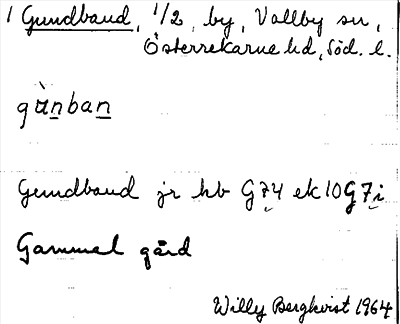 1 Gundband, 1/2, by, Vallby sn,
Österrekarne hd, Söd. l.
gùnban
Gundband jr hb G74 ek 10G7i
Gammal gård
Willy Bergkvist 1964